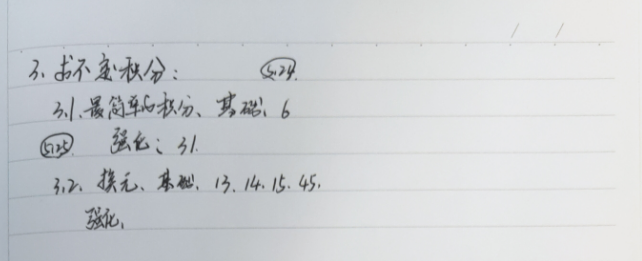 3、求不定积分： 5.24.
3.1、最简单的积分、基础、6
5.25 强化：31.
3.2、换元、基础、13、14、15、45.
强化、